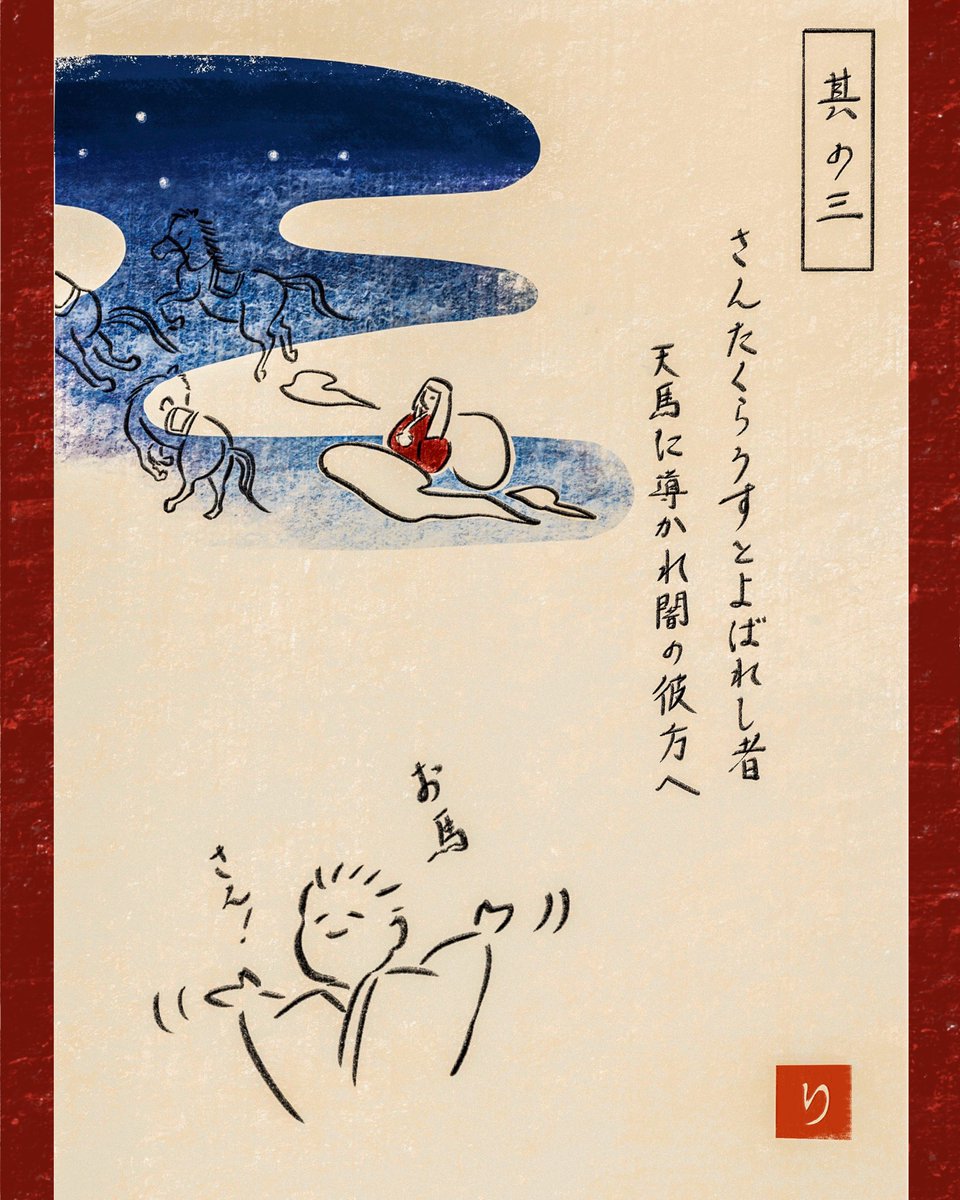 其の三
さんたくらうすとよばれし者
天馬に導かれ闇の彼方へ
お馬
さん！
り